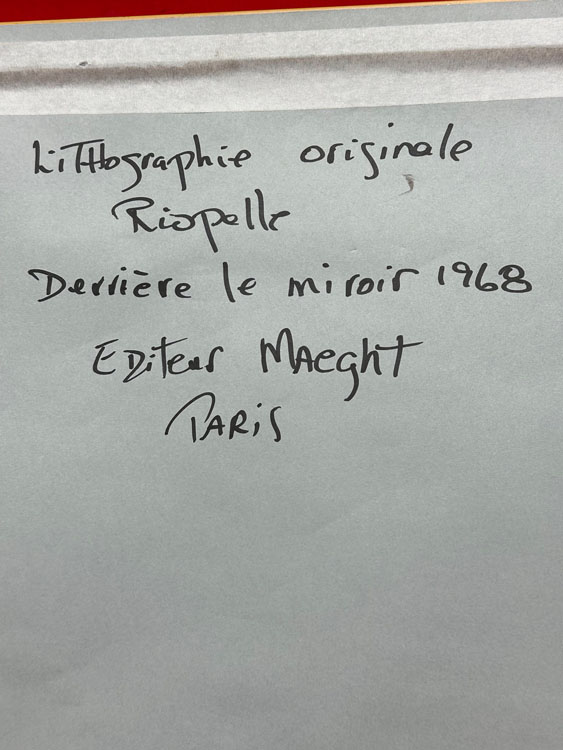 Lithographie originale
Riopelle
Derrière le miroir 1968
Editeur MAEGHT
PARIS